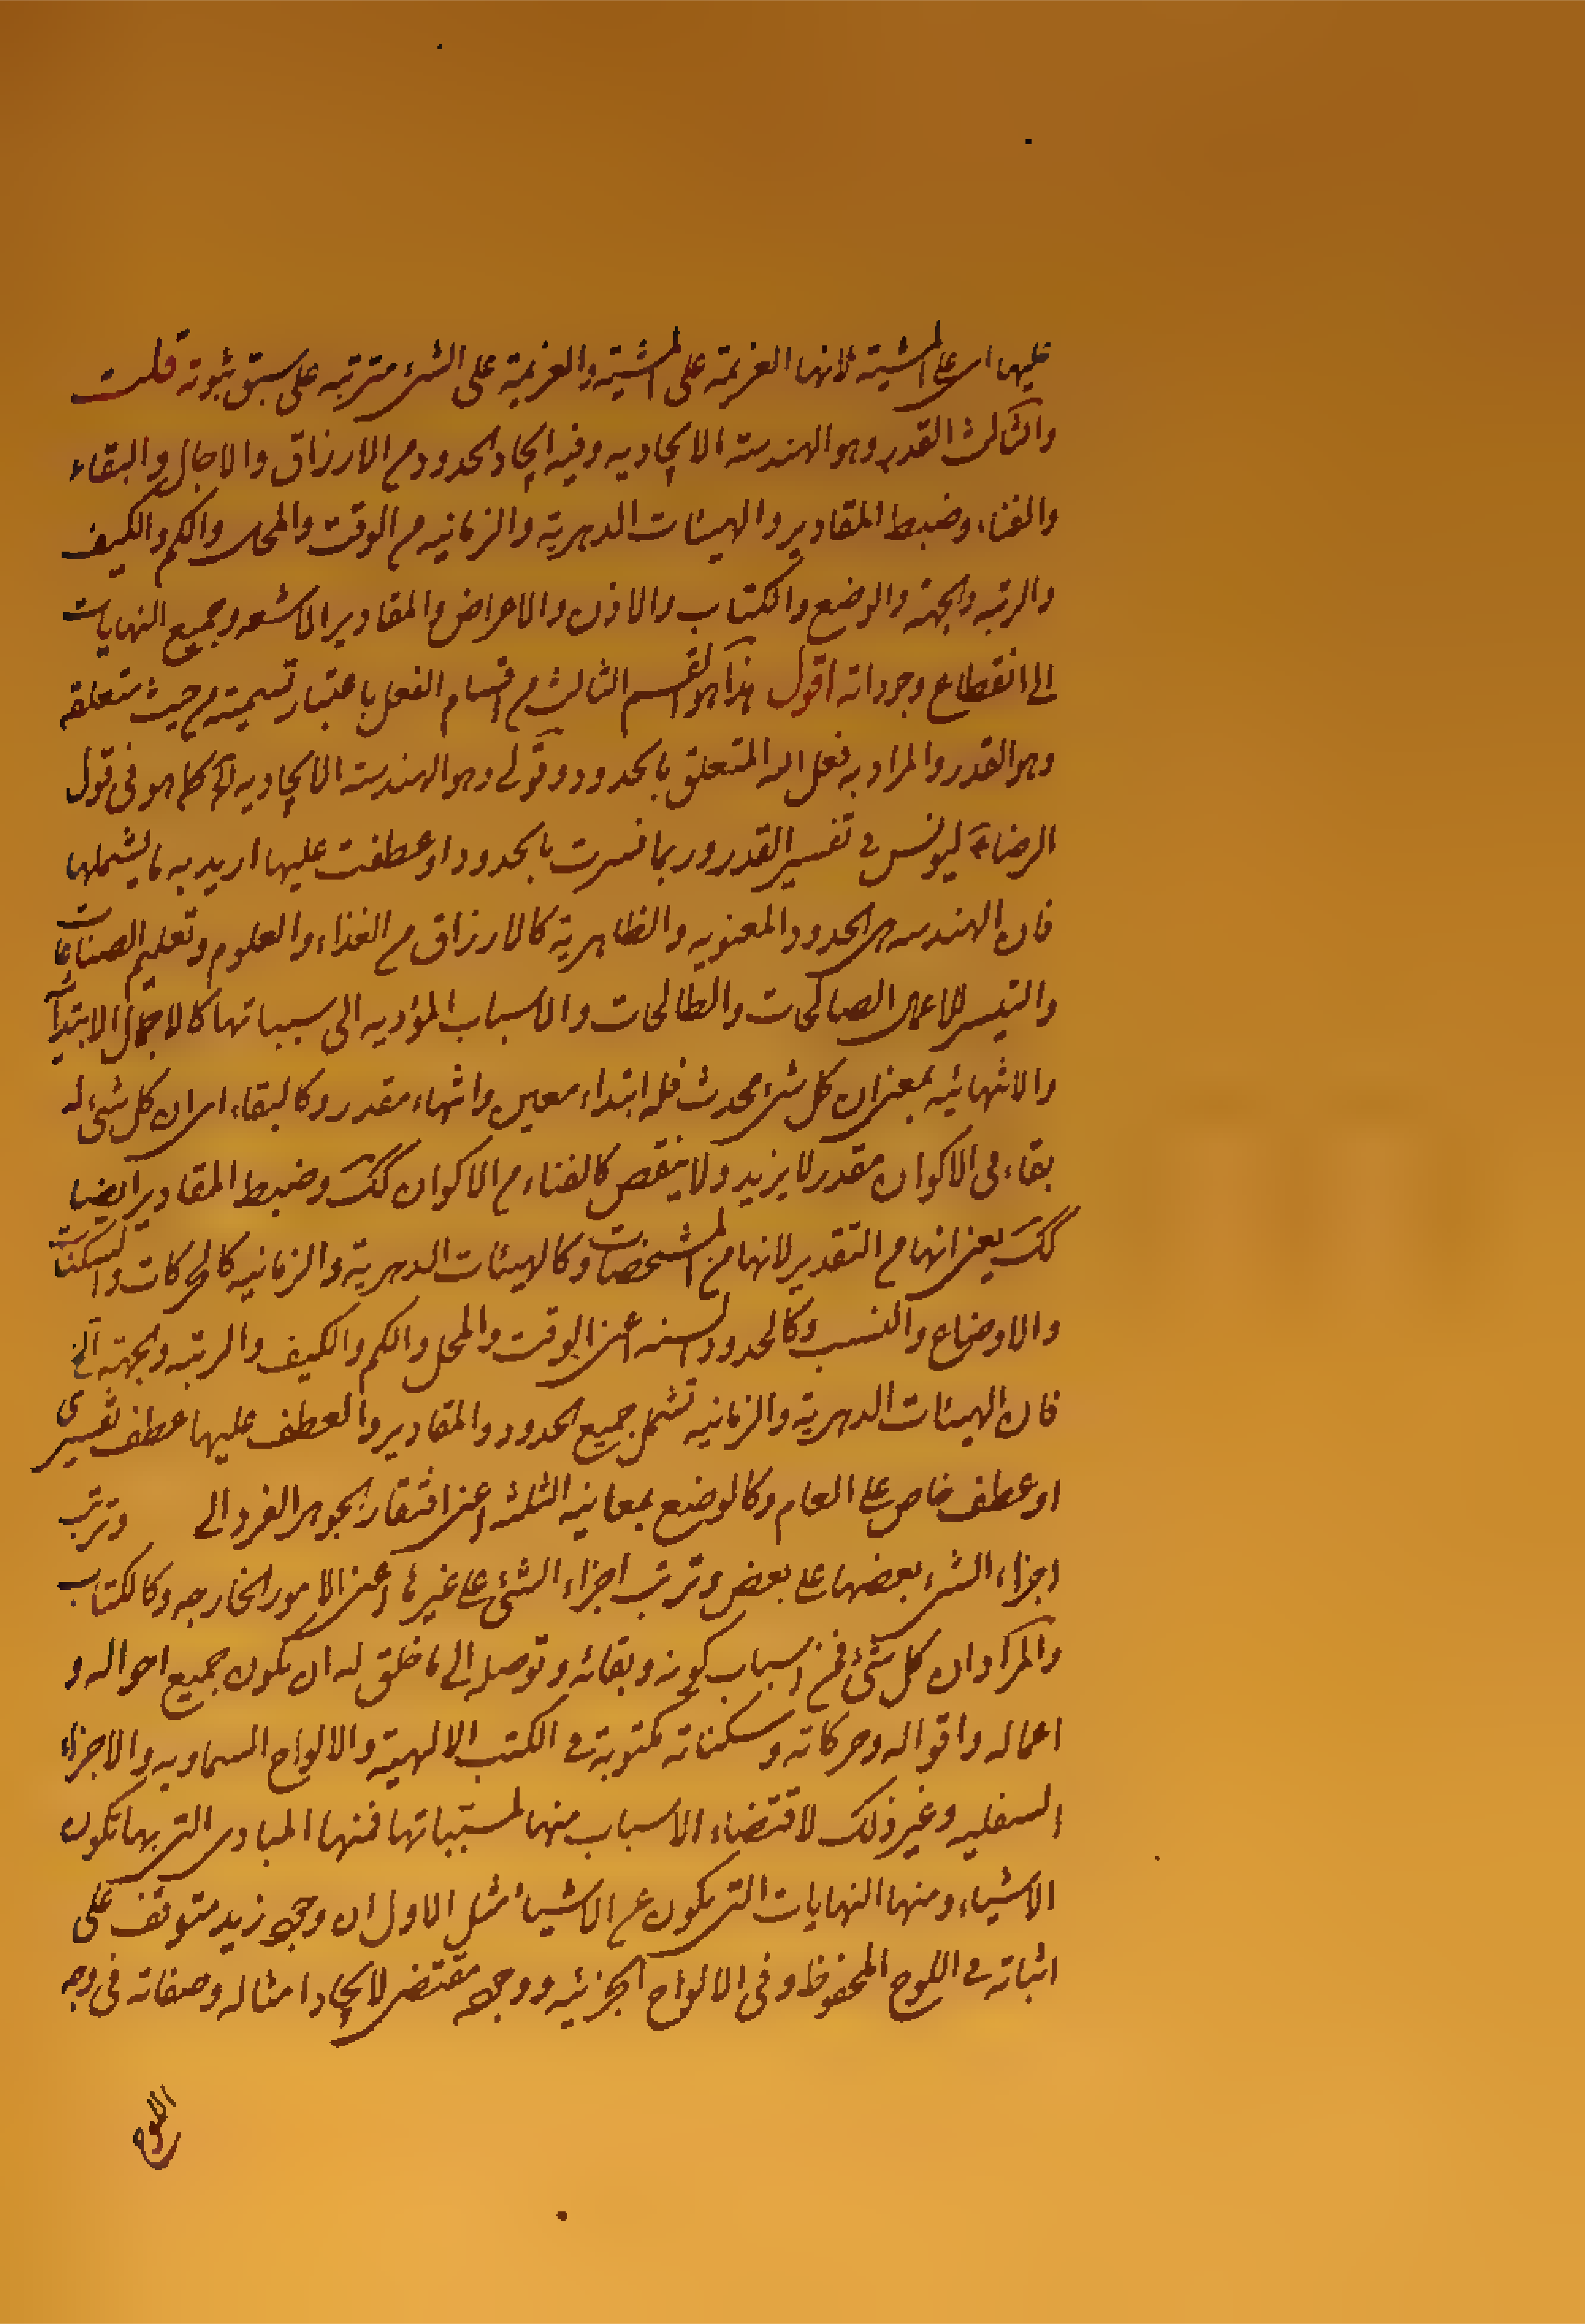 عليها اى على المشية لانها العزيمة على المشية والعزيمة على الشئ مترتبه على سبق ثبوته قلت
والثالث القدر وهو الهندسة الايجاديه وفيه ايجاد الحدود من الارزاق والاجال والبقاء
والفناء وضبط المقادير والهيئات الدهرية والزمانيه من الوقت والمحل والكم والكيف
والرتبه والجهة والوضع والكتاب والاذن والاعراض والمقادير الاشعه وجميع النهايات
الى انقطاع وجوداته اقول هذا هو القسم الثالث من اقسام الفعل باعتبار تسميته من حيث متعلقه
وهو القدر والمراد به فعل الله المتعلق بالحدود وقولى وهو الهندسة الايجاديه كما هو فى قول
الرضا ع ليونس فى تفسير القدر وربما فسرت بالحدود او عطفت عليها اريد به ما يشملها
فان الهندسه هى الحدود المعنويه والظاهرية كالارزاق من الغذاء والعلوم وتعليم الصناعات
والتيسر للاعمال الصالحات والطالحات والاسباب المؤديه الى سبباتها كالاجال الابتدائية
والانتهائيه بمعنى ان كل شئ محدث فله ابتداء معين وانتهاء مقدر وكالبقاء اى ان كل شئ له
بقاء فى الاكوان مقدر لا يزيد ولا ينقص كالفناء من الاكوان كك وضبط المقادير ايضا
كك يعنى انها من التقدير لانها من المشخصات وكالهيئات الدهرية والزمانيه كالحركات والسكنات
والاوضاع والنسب وكالحدود الستة اعنى الوقت والمحل والكم والكيف والرتبه والجهة الخ
فان الهيئات الدهرية والزمانيه تشمل جميع الحدود والمقادير والعطف عليها عطف تفسيرى
او عطف خاص على العام وكالوضع بمعانيه الثلثه اعنى افتقار الجوهر الفرد الى وترتب
اجزاء الشئ بعضها على بعض وترتب اجزاء الشئ على غيرها اعنى الامور الخارجه وكالكتاب
والمراد ان كل شئ فمن اسباب كونه وبقائه وتوصله الى ما خلق له ان يكون جميع احواله و
اعماله واقواله وحركاته وسكناته مكتوبة فى الكتب الالهية والالواح السماويه والاجزاء
السفليه وغير ذلك لاقتضاء الاسباب منها لمسبباتها فمنها المبادى التى بها تكون
الاشياء ومنها النهايات التى يكون عن الاشياء مثل الاول ان وجود زيد متوقف على
اثباته فى اللوح المحفوظ وفى الالواح الجزئيه ووجوده مقتضى لايجاد امثاله وصفاته فى وجه